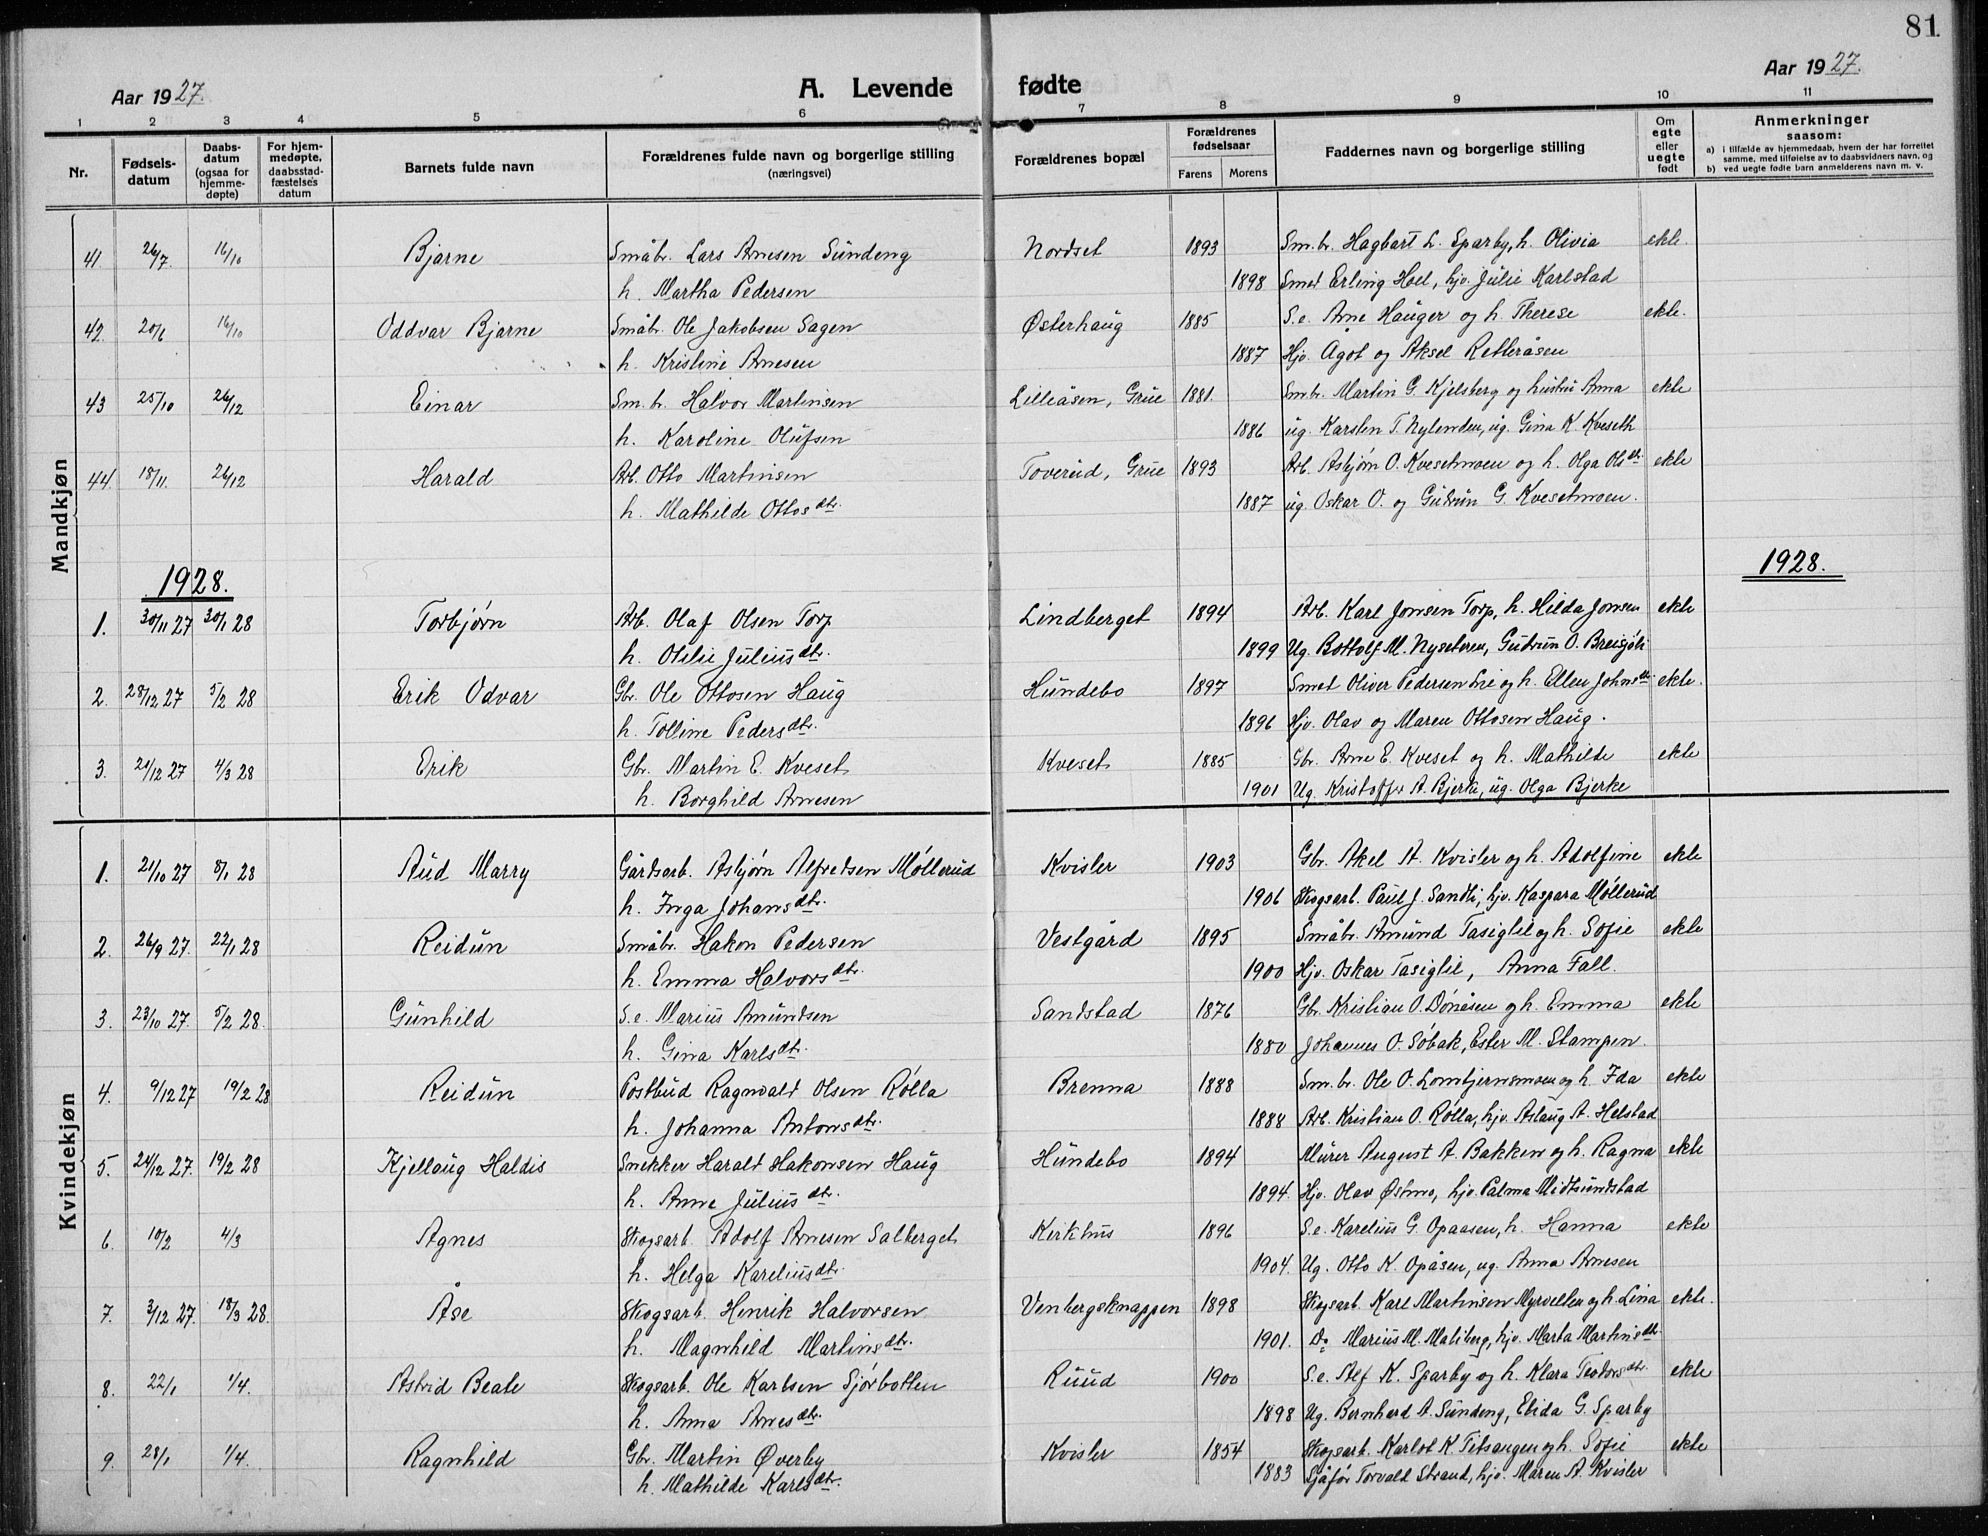 81
Aar 1927. A. Levende fødte Aar 1927.
1 2 3 4 5 6 7 8 9 10 11
Nr. Fødsels-datum Daabs-datum (ogsaa for hjemme-døpte) For hjem-medøpte, daabsstad-fæstelses datum Barnets fulde navn Forældrenes fulde navn og borgerlige stilling (næringsvei) Forældrenes bopæl Forældrenes fødselsaar Farens Morens Faddernes navn og borgerlige stilling Om egte eller uegte født Anmerkninger saasom: a) i tilfælde av hjemmedaab, hvem der har forrettet samme, med tilføielse av to daabsvidners navn, og b) ved uegte fødte barn anmelderens navn m. v.
Mandkjøn
41. 26/7. 16/10 Bjarne Småbr. Lars Arnesen Sundeng Nordset 1893 Sm.br. Hagbart L. Sparby, h. Olivia ekte.
h. Martha Pedersen 1898 Smed Erling Hoel, hjv. Julie Karlstad
42. 20/6 16/10 Oddvar Bjarne Småbr. Ole Jakobsen Sagen Østerhaug 1885 S.e. Arne Hauger og h. Therese ekte.
h. Kristine Arnesen 1887 Hjv. Ågot og Aksel Retteråsen
43 25/10 26/12 Einar Sm.br. Halvor Martinsen Lilleåsen, Grue 1881. Sm.br. Martin G. Kjelsberg og hustru Anna ekte
h. Karoline Olufsen 1886 ug. Karsten T. Nylenden, ug. Gina K. Kveseth
44. 18/11. 26/12 Harald Arb. Otto Martinsen Toverud, Grue 1893 Arb. Asbjørn O. Kvesetmoen og h. Olga Olsdt. ekte
h. Mathilde Ottosdtr. 1887 ug. Oskar O. og Gudrun G. Kvesetmoen.
1928. 1928.
1. 30/11 27 30/1 28 Torbjørn Arb. Olaf Olsen Torp Lindberget 1894 Arb. Karl Jonsen Torp, h. Hilda Jonsen ekte
h. Otilie Juliusdtr. 1899 Ug. Bottolf M. Nyseteren, Gudrun O. Breisjøli
2. 28/12 27 5/2 28 Erik Odvar Gbr. Ole Ottosen Haug Hundebo 1897 Smed Oliver Pedersen Lie og h. Ellen Johnsdt. ekte.
h. Tolline Pedersdtr. 1896 Hjv. Olav og Maren Ottosen Haug.
3. 21/12 27 4/3 28 Erik Gbr. Martin E. Kveset Kveset 1885 Gbr. Arne E. Kveset og h. Mathilde ekte
h. Borghild Arnesen 1901 Ug. Kristoffer A. Bjerke, ug. Olga Bjerke
Kvindekjøn
1. 21/10 27 8/1 28 Aud Marry Gårdsarb. Asbjørn Alfredsen Møllerud Kvisler 1903 Gbr. Aksel A. Kvisler og h. Adolfine ekte
h. Inga Johansdtr. 1906 Skogsarb. Paul J. Sandli, hjv. Kaspara Møllerud
2. 26/9 27. 22/1 28 Reidun Småbr. Hakon Pedersen Vestgård 1895 Småbr. Amund Tasiglie og h. Sofie ekte
h. Emma Halvorsdtr. 1900 Hjv. Oskar Tasiglie, Anna Fall.
3. 23/10 27. 5/2 28. Gunhild S.e. Marius Amundsen Sandstad 1876 Gbr. Kristian O. Dønåsen og h. Emma ekte
h. Gina Karlsdtr. 1880 Johannes O. Søbak, Ester M. Stampen.
4. 9/12 27 19/2 28 Reidun Postbud Ragnvald Olsen Rølla Brenna 1888 Sm.br. Ole O. Lomtjernsmoen og h. Ida ekte
h. Johanna Antonsdtr. 1888 Arb. Kristian O. Rølla, hjv. Aslaug A. Helstad
5. 24/12 27. 19/2 28 Kjellaug Haldis Snekker Harald Hakonsen Haug Hundebo 1894 Murer August A. Bakken og h. Ragna ekte
h. Anne Juliusdtr. 1894. Hjv. Olav Østmo, hjv. Palma Midtsundstad
6. 10/2 4/3 Agnes Skogsarb. Adolf Arnesen Salberget Kirkhus 1896 S.e. Karelius G. Opaasen, h. Hanna ekte
h. Helga Kareliusdtr. 1904. Ug. Otto K. Opåsen, ug. Anna Arnesen
7. 3/12 27. 18/3 28. Åse Skogsarb. Henrik Halvorsen Venbergsknappen 1898 Skogsarb. Karl Martinsen Myrvelten og h. Lina ekte.
h. Magnhild Martinsdtr. 1901. Do Marius M. Maliberg, hjv. Marta Martinsdtr.
8. 22/1 1/4. Astrid Beate Skogsarb. Ole Karlsen Sjørbotten Ruud 1900 S.e. Alf K. Sparby og h. Klara Teodorsdtr. ekte
h. Anna Arnesdtr. 1898 Ug. Bernhard A. Sundeng, Elida G. Sparby
9. 28/1 1/4. Ragnhild Gbr. Martin Øverby Kvisler 1854 Skogsarb. Karlot K. Titsangen og h. Sofie ekte
h. Mathilde Karlsdtr. 1883 Sjåfør Torvald Strand, hjv. Maren A. Kvisler